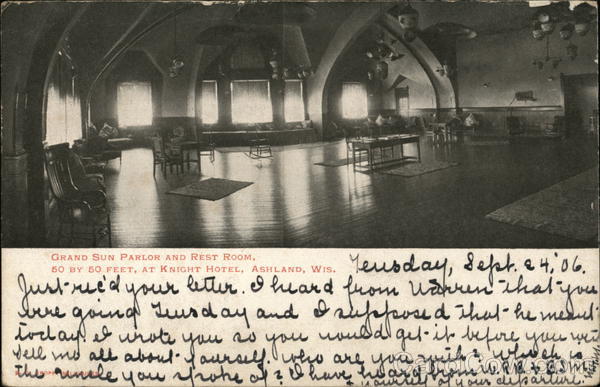 Grand Sun Parlor and Rest Room,
50 by 50 feet, at Knight Hotel, Ashland, Wis.
Teusday, Sept. 24, '06.
Just rec'd your letter. I heard from Warren that you
were going Teusday and I supposed that he meant
today. I wrote you so you would get it before you
Tell me all about yourself, who are you with, which is
the uncle you spoke of? I have heard
yourself of your departure.
CardCow.com